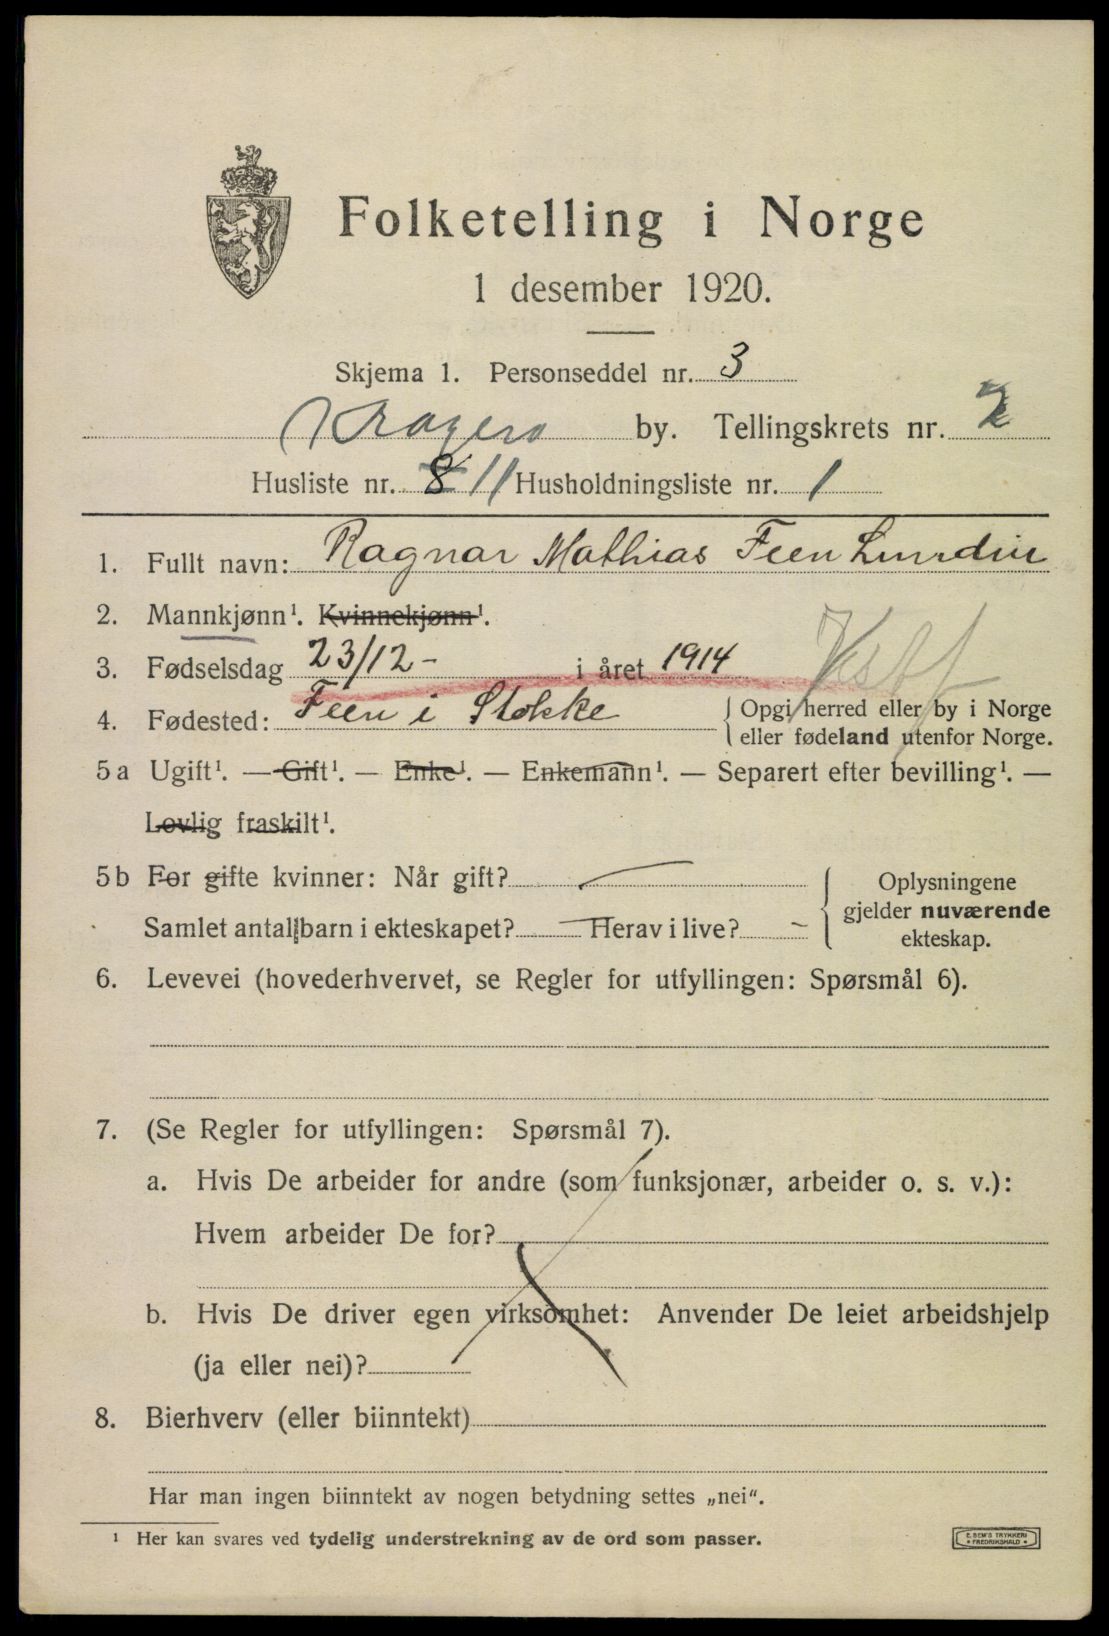 Folketelling i Norge
1 desember 1920.
Skjema 1. Personseddel nr. 3
Kragerø by. Tellingskrets nr. 2
Husliste nr. 8 11 Husholdningsliste nr. 1
1. Fullt navn: Ragnar Mathias Feen Lundin
2. Mannkjønn¹. Kvinnekjønn¹.
3. Fødselsdag 23/12 - i året 1914
Vestf
4. Fødested: Feen i Stokke { Opgi herred eller by i Norge
eller fødeland utenfor Norge.
5a Ugift¹. — Gift¹. — Enke¹. — Enkemann¹. — Separert efter bevilling¹. —
Lovlig fraskilt¹.
5b For gifte kvinner: Når gift? — { Oplysningene
gjelder nuværende
Samlet antal barn i ekteskapet? — Herav i live? –
ekteskap.
6. Levevei (hovederhvervet, se Regler for utfyllingen: Spørsmål 6).
7. (Se Regler for utfyllingen: Spørsmål 7).
a. Hvis De arbeider for andre (som funksjonær, arbeider o. s. v.):
Hvem arbeider De for?
b. Hvis De driver egen virksomhet: Anvender De leiet arbeidshjelp
(ja eller nei)?
8. Bierhverv (eller biinntekt)
Har man ingen biinntekt av nogen betydning settes „nei“.
¹ Her kan svares ved tydelig understrekning av de ord som passer.
E. SEM'S TRYKKERI
• FREDRIKSHALD •